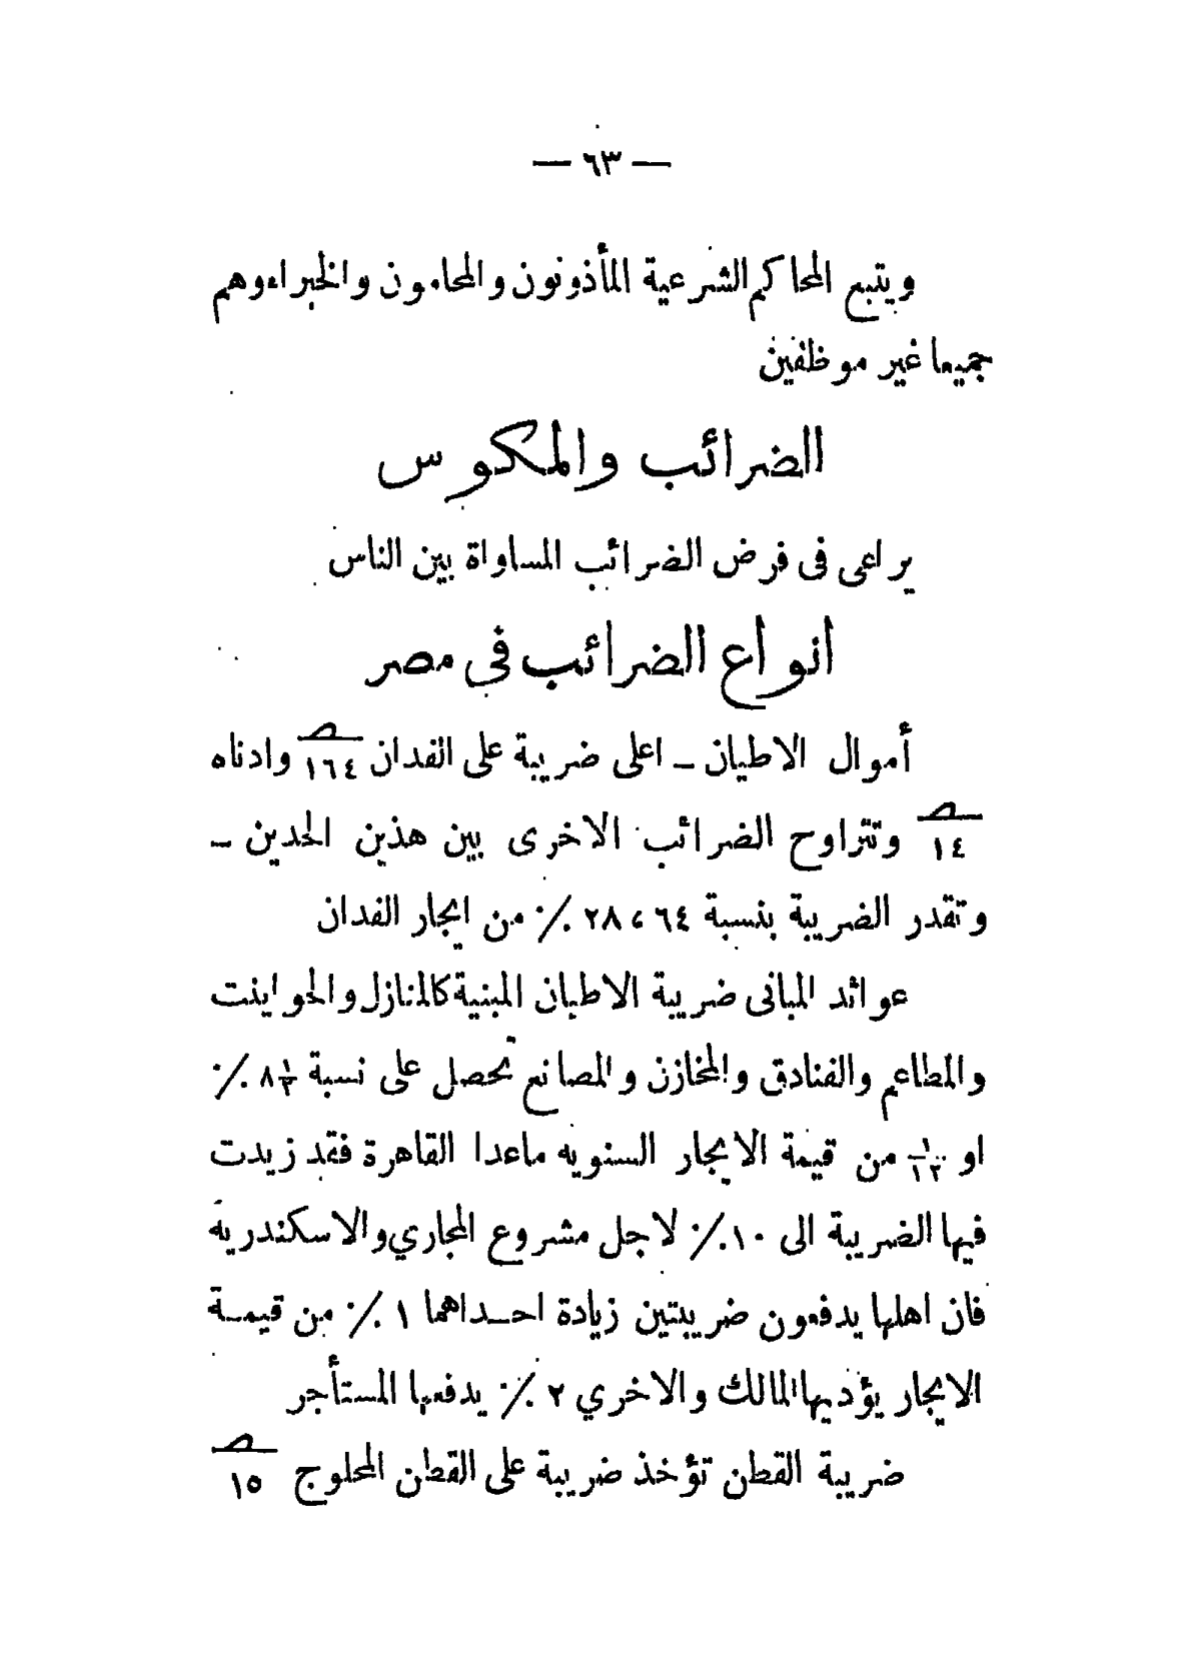 — ٦٣ —
ويتبع المحاكم الشرعية المأذونون والمحامون والخبراء وهم
جميعا غير موظفين
الضرائب والمكوس
يراعى فى فرض الضرائب المساواة بين الناس
انواع الضرائب فى مصر
أموال الاطيان ــ اعلى ضريبة على الفدان ١٦٤ صـ وادناه
١٤ صـ وتتراوح الضرائب الاخرى بين هذين الحدين ــ
وتقدر الضريبة بنسبة ٢٨،٦٤ ٪ من ايجار الفدان
عوائد المبانى ضريبة الاطيان المبنية كالمنازل والحوانيت
والمطاعم والفنادق والمخازن والمصانع تحصل على نسبة ٨⅓ ٪
او ١/١٢ من قيمة الايجار السنويه ماعدا القاهرة فقد زيدت
فيها الضريبة الى ١٠٪ لاجل مشروع المجاري والاسكندريه
فان اهلها يدفعون ضريبتين زيادة احـداهما ١ ٪ من قيمـة
الايجار يؤديها المالك والاخري ٢ ٪ يدفعها المستأجر
ضريبة القطن تؤخذ ضريبة على القطن المحلوج ١٥ صـ